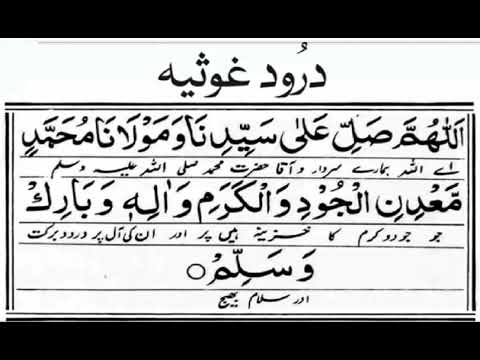 درُود غوثیہ
اَللّٰهُمَّ صَلِّ عَلٰى سَيِّدِنَا وَمَوْلَانَا مُحَمَّدٍ
اے اللہ ہمارے سردار و آقا حضرت محمد صلی اللہ علیہ وسلم
مَّعْدِنِ الْجُوْدِ وَالْكَرَمِ وَاٰلِهٖ وَبَارِكْ
جو جود و کرم کا خزینہ ہیں پر اور ان کی آل پر درود برکت
وَسَلِّمْ○
اور سلام بھیج